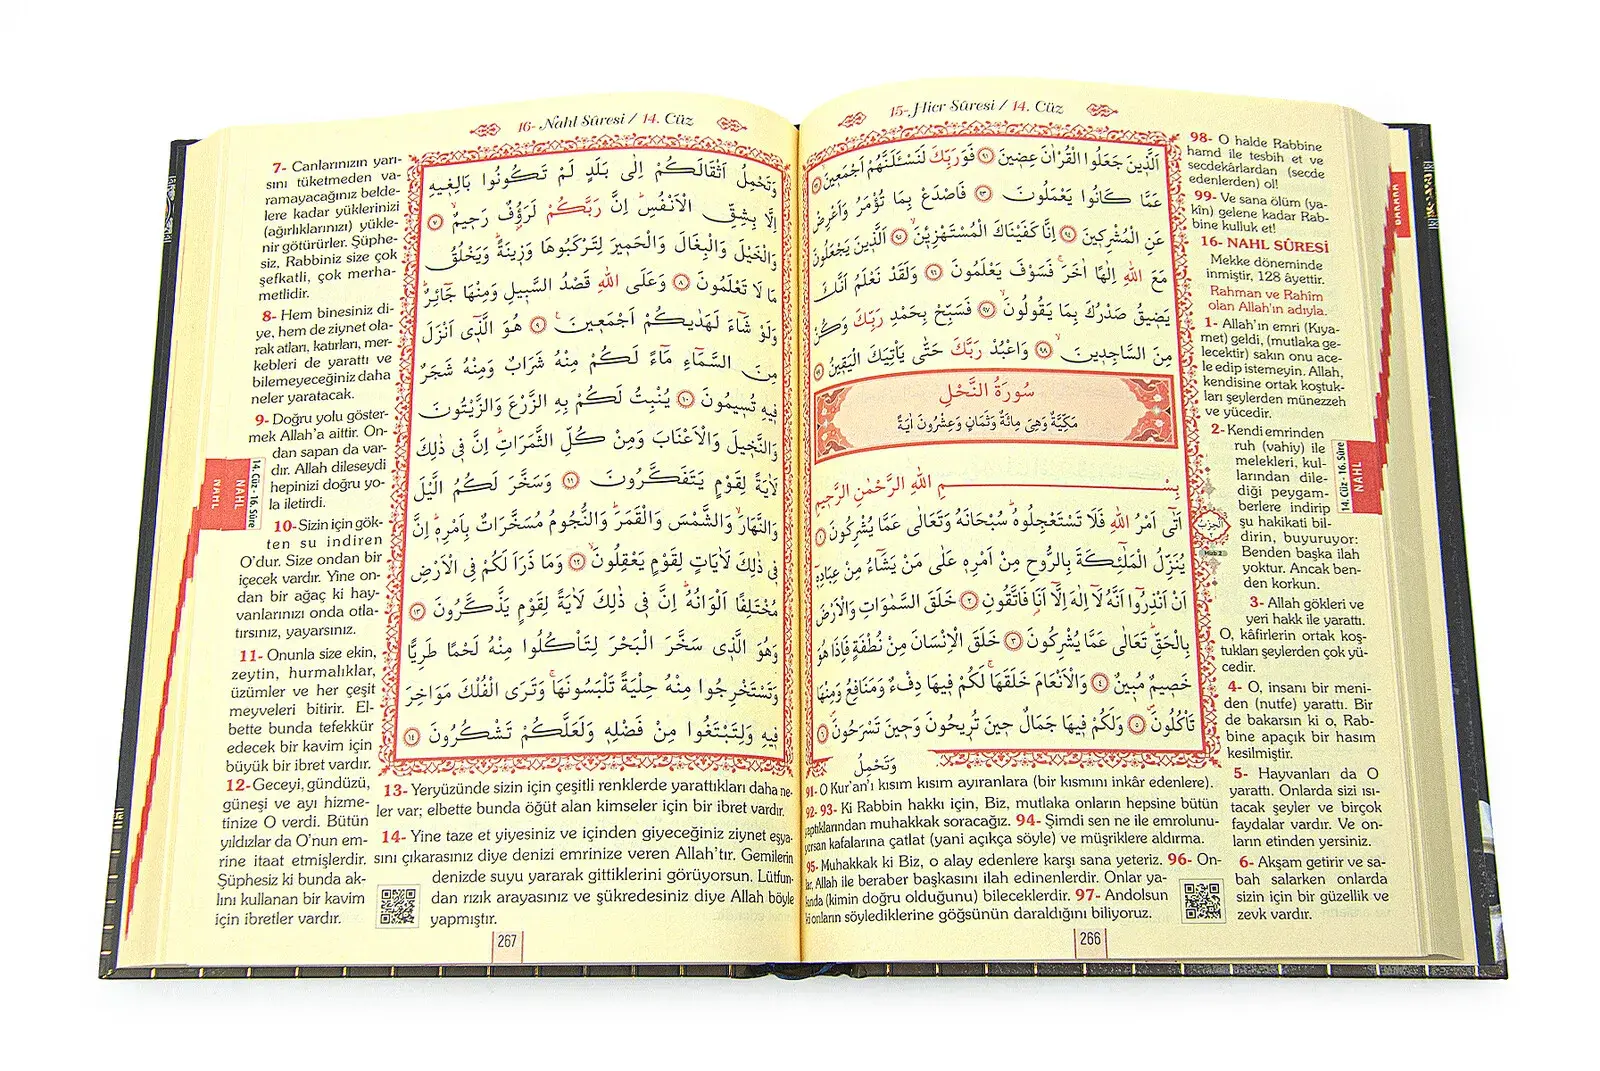 15- Hicr Sûresi / 14. Cüz
اَلَّذِينَ جَعَلُوا الْقُرْاٰنَ عِضِينَ ٩١ فَوَرَبِّكَ لَنَسْـَٔلَنَّهُمْ اَجْمَعِينَ ٩٢
عَمَّا كَانُوا يَعْمَلُونَ ٩٣ فَاصْدَعْ بِمَا تُؤْمَرُ وَاَعْرِضْ
عَنِ الْمُشْرِكِينَ ٩٤ اِنَّا كَفَيْنَاكَ الْمُسْتَهْزِئِينَ ٩٥ اَلَّذِينَ يَجْعَلُونَ
مَعَ اللّٰهِ اِلٰهًا اٰخَرَ فَسَوْفَ يَعْلَمُونَ ٩٦ وَلَقَدْ نَعْلَمُ اَنَّكَ
يَضِيقُ صَدْرُكَ بِمَا يَقُولُونَ ٩٧ فَسَبِّحْ بِحَمْدِ رَبِّكَ وَكُنْ
مِنَ السَّاجِدِينَ ٩٨ وَاعْبُدْ رَبَّكَ حَتّٰى يَأْتِيَكَ الْيَقِينُ ٩٩
سُورَةُ النَّحْلِ
مَكِّيَّةٌ وَهِىَ مِائَةٌ وَثَمَانٍ وَعِشْرُونَ اٰيَةً
بِسْمِ اللّٰهِ الرَّحْمٰنِ الرَّحِيمِ
اَتٰٓى اَمْرُ اللّٰهِ فَلَا تَسْتَعْجِلُوهُ سُبْحَانَهُ وَتَعَالٰى عَمَّا يُشْرِكُونَ ١
يُنَزِّلُ الْمَلٰٓئِكَةَ بِالرُّوحِ مِنْ اَمْرِهِ عَلٰى مَنْ يَشَٓاءُ مِنْ عِبَادِهِ
اَنْ اَنْذِرُٓوا اَنَّهُ لَٓا اِلٰهَ اِلَّٓا اَنَا فَاتَّقُونِ ٢ خَلَقَ السَّمٰوَاتِ وَالْاَرْضَ
بِالْحَقِّ تَعَالٰى عَمَّا يُشْرِكُونَ ٣ خَلَقَ الْاِنْسَانَ مِنْ نُطْفَةٍ فَاِذَا هُوَ
خَصِيمٌ مُبِينٌ ٤ وَالْاَنْعَامَ خَلَقَهَا لَكُمْ فِيهَا دِفْءٌ وَمَنَافِعُ وَمِنْهَا
تَأْكُلُونَ ٥ وَلَكُمْ فِيهَا جَمَالٌ حِينَ تُرِيحُونَ وَحِينَ تَسْرَحُونَ ٦
وَتَحْمِلُ
91- O Kur'an'ı kısım kısım ayıranlara (bir kısmını inkâr edenlere).
92- 93- Ki Rabbin hakkı için, Biz, mutlaka onların hepsine bütün
yaptıklarından muhakkak soracağız. 94- Şimdi sen ne ile emrolunu-
yorsan kafalarına çatlat (yani açıkça söyle) ve müşriklere aldırma.
95- Muhakkak ki Biz, o alay edenlere karşı sana yeteriz. 96- On-
lar, Allah ile beraber başkasını ilah edinenlerdir. Onlar ya-
kında (kimin doğru olduğunu) bileceklerdir. 97- Andolsun
ki onların söylediklerine göğsünün daraldığını biliyoruz.
98- O halde Rabbine
hamd ile tesbih et ve
secdekârlardan (secde
edenlerden) ol!
99- Ve sana ölüm (ya-
kîn) gelene kadar Rab-
bine kulluk et!
16- NAHL SÛRESİ
Mekke döneminde
inmiştir, 128 âyettir.
Rahman ve Rahîm
olan Allah'ın adıyla.
1- Allah'ın emri (Kıya-
met) geldi, (mutlaka ge-
lecektir) sakın onu ace-
le edip istemeyin. Allah,
kendisine ortak koştuk-
ları şeylerden münezzeh
ve yücedir.
2- Kendi emrinden
ruh (vahiy) ile
melekleri, kul-
larından dile-
diği peygam-
berlere indirip
şu hakikati bil-
dirin, buyuruyor:
Benden başka ilah
yoktur. Ancak ben-
den korkun.
3- Allah gökleri ve
yeri hakk ile yarattı.
O, kâfirlerin ortak koş-
tukları şeylerden çok yü-
cedir.
4- O, insanı bir meni-
den (nutfe) yarattı. Bir
de bakarsın ki o, Rab-
bine apaçık bir hasım
kesilmiştir.
5- Hayvanları da O
yarattı. Onlarda sizi ısı-
tacak şeyler ve birçok
faydalar vardır. Ve on-
ların etinden yersiniz.
6- Akşam getirir ve sa-
bah salarken onlarda
sizin için bir güzellik ve
zevk vardır.
14. Cüz - 16. Sûre
NAHL
266
16- Nahl Sûresi / 14. Cüz
وَتَحْمِلُ اَثْقَالَكُمْ اِلٰى بَلَدٍ لَمْ تَكُونُوا بَالِغِيهِ
اِلَّا بِشِقِّ الْاَنْفُسِ اِنَّ رَبَّكُمْ لَرَؤُفٌ رَحِيمٌ ٧
وَالْخَيْلَ وَالْبِغَالَ وَالْحَمِيرَ لِتَرْكَبُوهَا وَزِينَةً وَيَخْلُقُ
مَا لَا تَعْلَمُونَ ٨ وَعَلَى اللّٰهِ قَصْدُ السَّبِيلِ وَمِنْهَا جَٓائِرٌ
وَلَوْ شَٓاءَ لَهَدٰيكُمْ اَجْمَعِينَ ٩ هُوَ الَّذِٓى اَنْزَلَ
مِنَ السَّمَٓاءِ مَٓاءً لَكُمْ مِنْهُ شَرَابٌ وَمِنْهُ شَجَرٌ
فِيهِ تُسِيمُونَ ١٠ يُنْبِتُ لَكُمْ بِهِ الزَّرْعَ وَالزَّيْتُونَ
وَالنَّخِيلَ وَالْاَعْنَابَ وَمِنْ كُلِّ الثَّمَرَاتِ اِنَّ فِى ذٰلِكَ
لَاٰيَةً لِقَوْمٍ يَتَفَكَّرُونَ ١١ وَسَخَّرَ لَكُمُ الَّيْلَ
وَالنَّهَارَ وَالشَّمْسَ وَالْقَمَرَ وَالنُّجُومُ مُسَخَّرَاتٌ بِاَمْرِهِ اِنَّ
فِى ذٰلِكَ لَاٰيَاتٍ لِقَوْمٍ يَعْقِلُونَ ١٢ وَمَا ذَرَاَ لَكُمْ فِى الْاَرْضِ
مُخْتَلِفًا اَلْوَانُهُ اِنَّ فِى ذٰلِكَ لَاٰيَةً لِقَوْمٍ يَذَّكَّرُونَ ١٣
وَهُوَ الَّذِى سَخَّرَ الْبَحْرَ لِتَأْكُلُوا مِنْهُ لَحْمًا طَرِيًّا
وَتَسْتَخْرِجُوا مِنْهُ حِلْيَةً تَلْبَسُونَهَا وَتَرَى الْفُلْكَ مَوَاخِرَ
فِيهِ وَلِتَبْتَغُوا مِنْ فَضْلِهِ وَلَعَلَّكُمْ تَشْكُرُونَ ١٤
7- Canlarınızın yarı-
sını tüketmeden va-
ramayacağınız belde-
lere kadar yüklerinizi
(ağırlıklarınızı) yükle-
nir götürürler. Şüphe-
siz, Rabbiniz size çok
şefkatli, çok merha-
metlidir.
8- Hem binesiniz di-
ye, hem de ziynet ola-
rak atları, katırları, mer-
kebleri de yarattı ve
bilemeyeceğiniz daha
neler yaratacak.
9- Doğru yolu göster-
mek Allah'a aittir. On-
dan sapan da var-
dır. Allah dileseydi
hepinizi doğru yo-
la iletirdi.
10- Sizin için gök-
ten su indiren
O'dur. Size ondan bir
içecek vardır. Yine on-
dan bir ağaç ki hay-
vanlarınızı onda otla-
tırsınız, yayarsınız.
11- Onunla size ekin,
zeytin, hurmalıklar,
üzümler ve her çeşit
meyveleri bitirir. El-
bette bunda tefekkür
edecek bir kavim için
büyük bir ibret vardır.
12- Geceyi, gündüzü,
güneşi ve ayı hizme-
tinize O verdi. Bütün
yıldızlar da O'nun em-
rine itaat etmişlerdir.
Şüphesiz ki bunda ak-
lını kullanan bir kavim
için ibretler vardır.
13- Yeryüzünde sizin için çeşitli renklerde yarattıkları daha ne-
ler var; elbette bunda öğüt alan kimseler için bir ibret vardır.
14- Yine taze et yiyesiniz ve içinden giyeceğiniz ziynet eşya-
sını çıkarasınız diye denizi emrinize veren Allah'tır. Gemilerin
denizde suyu yararak gittiklerini görüyorsun. Lütfun-
dan rızık arayasınız ve şükredesiniz diye Allah böyle
yapmıştır.
14. Cüz - 16. Sûre
NAHL
NAHL
267